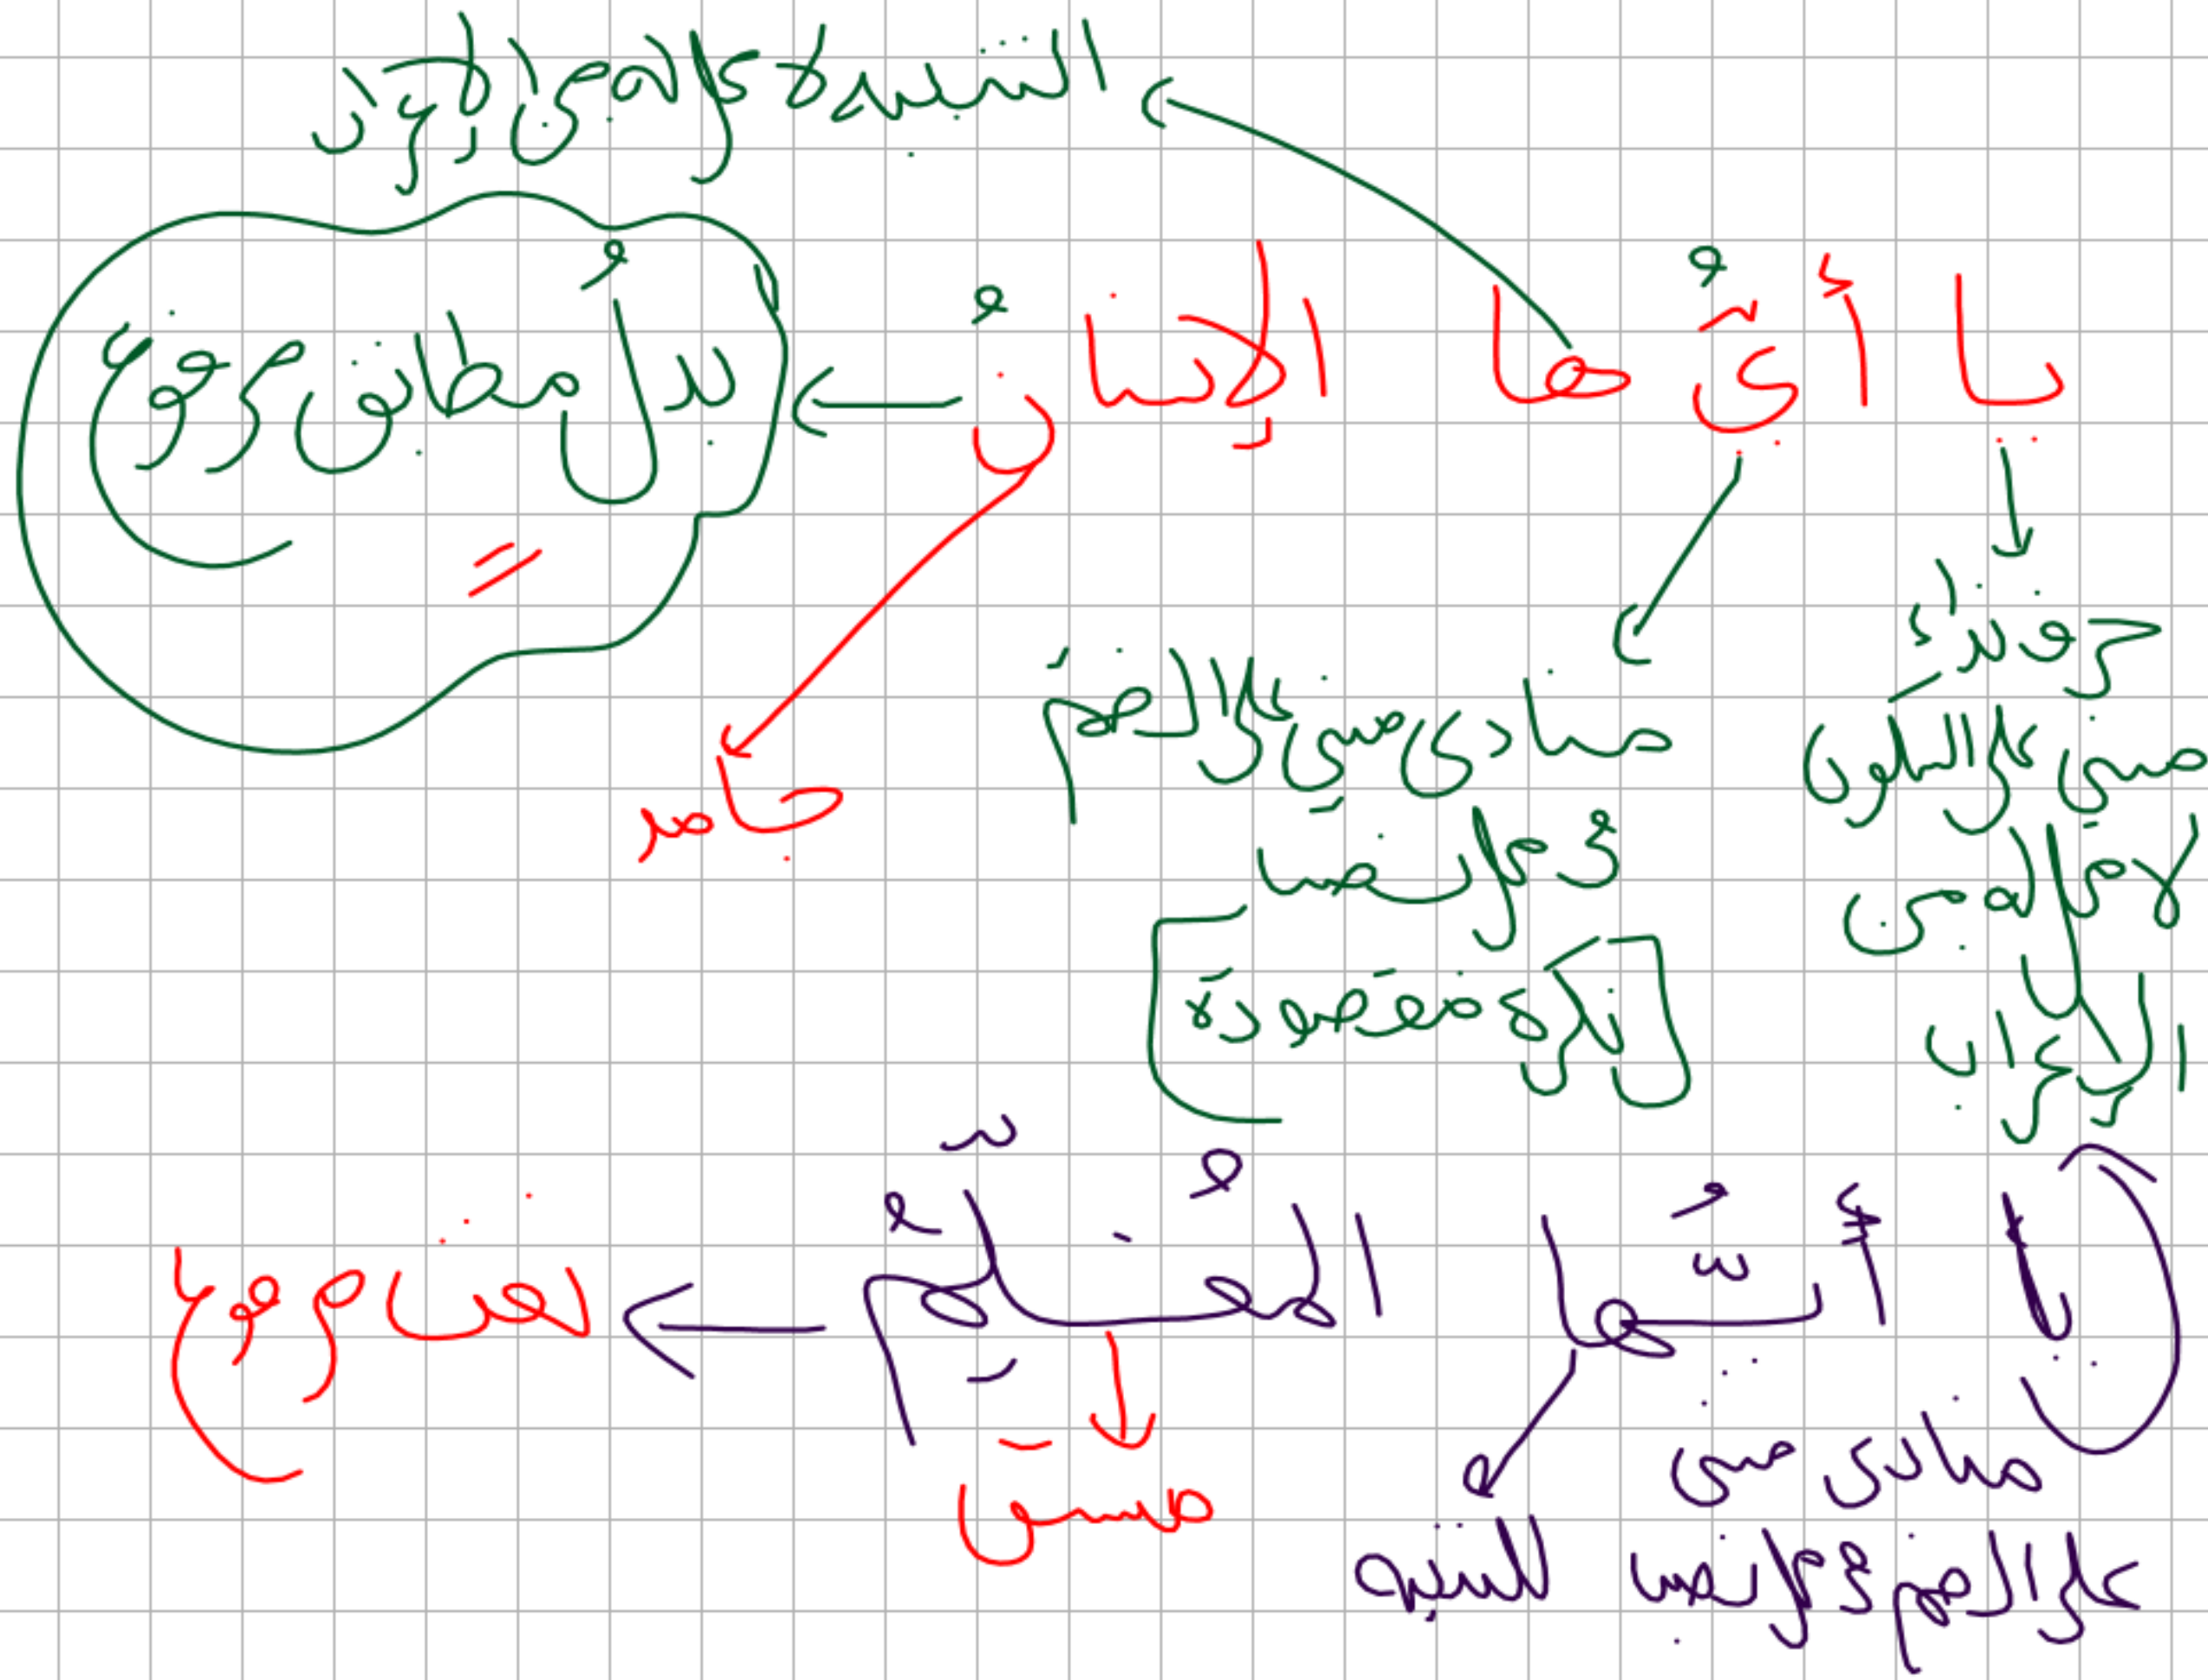 للتنبيه لا محل لها من الإعراب
يا أيُّها الإنسانُ
بدل مطابق مرفوع
جامد
حرف نداء
مبني على السكون
لا محل له من
الإعراب
منادى مبني على الضم
في محل نصب
نكرة مقصودة
يا أيتُها المعلِّمةُ
نعت مرفوع
مشتق
منادى مبني
على الضم في محل نصب للتنبيه